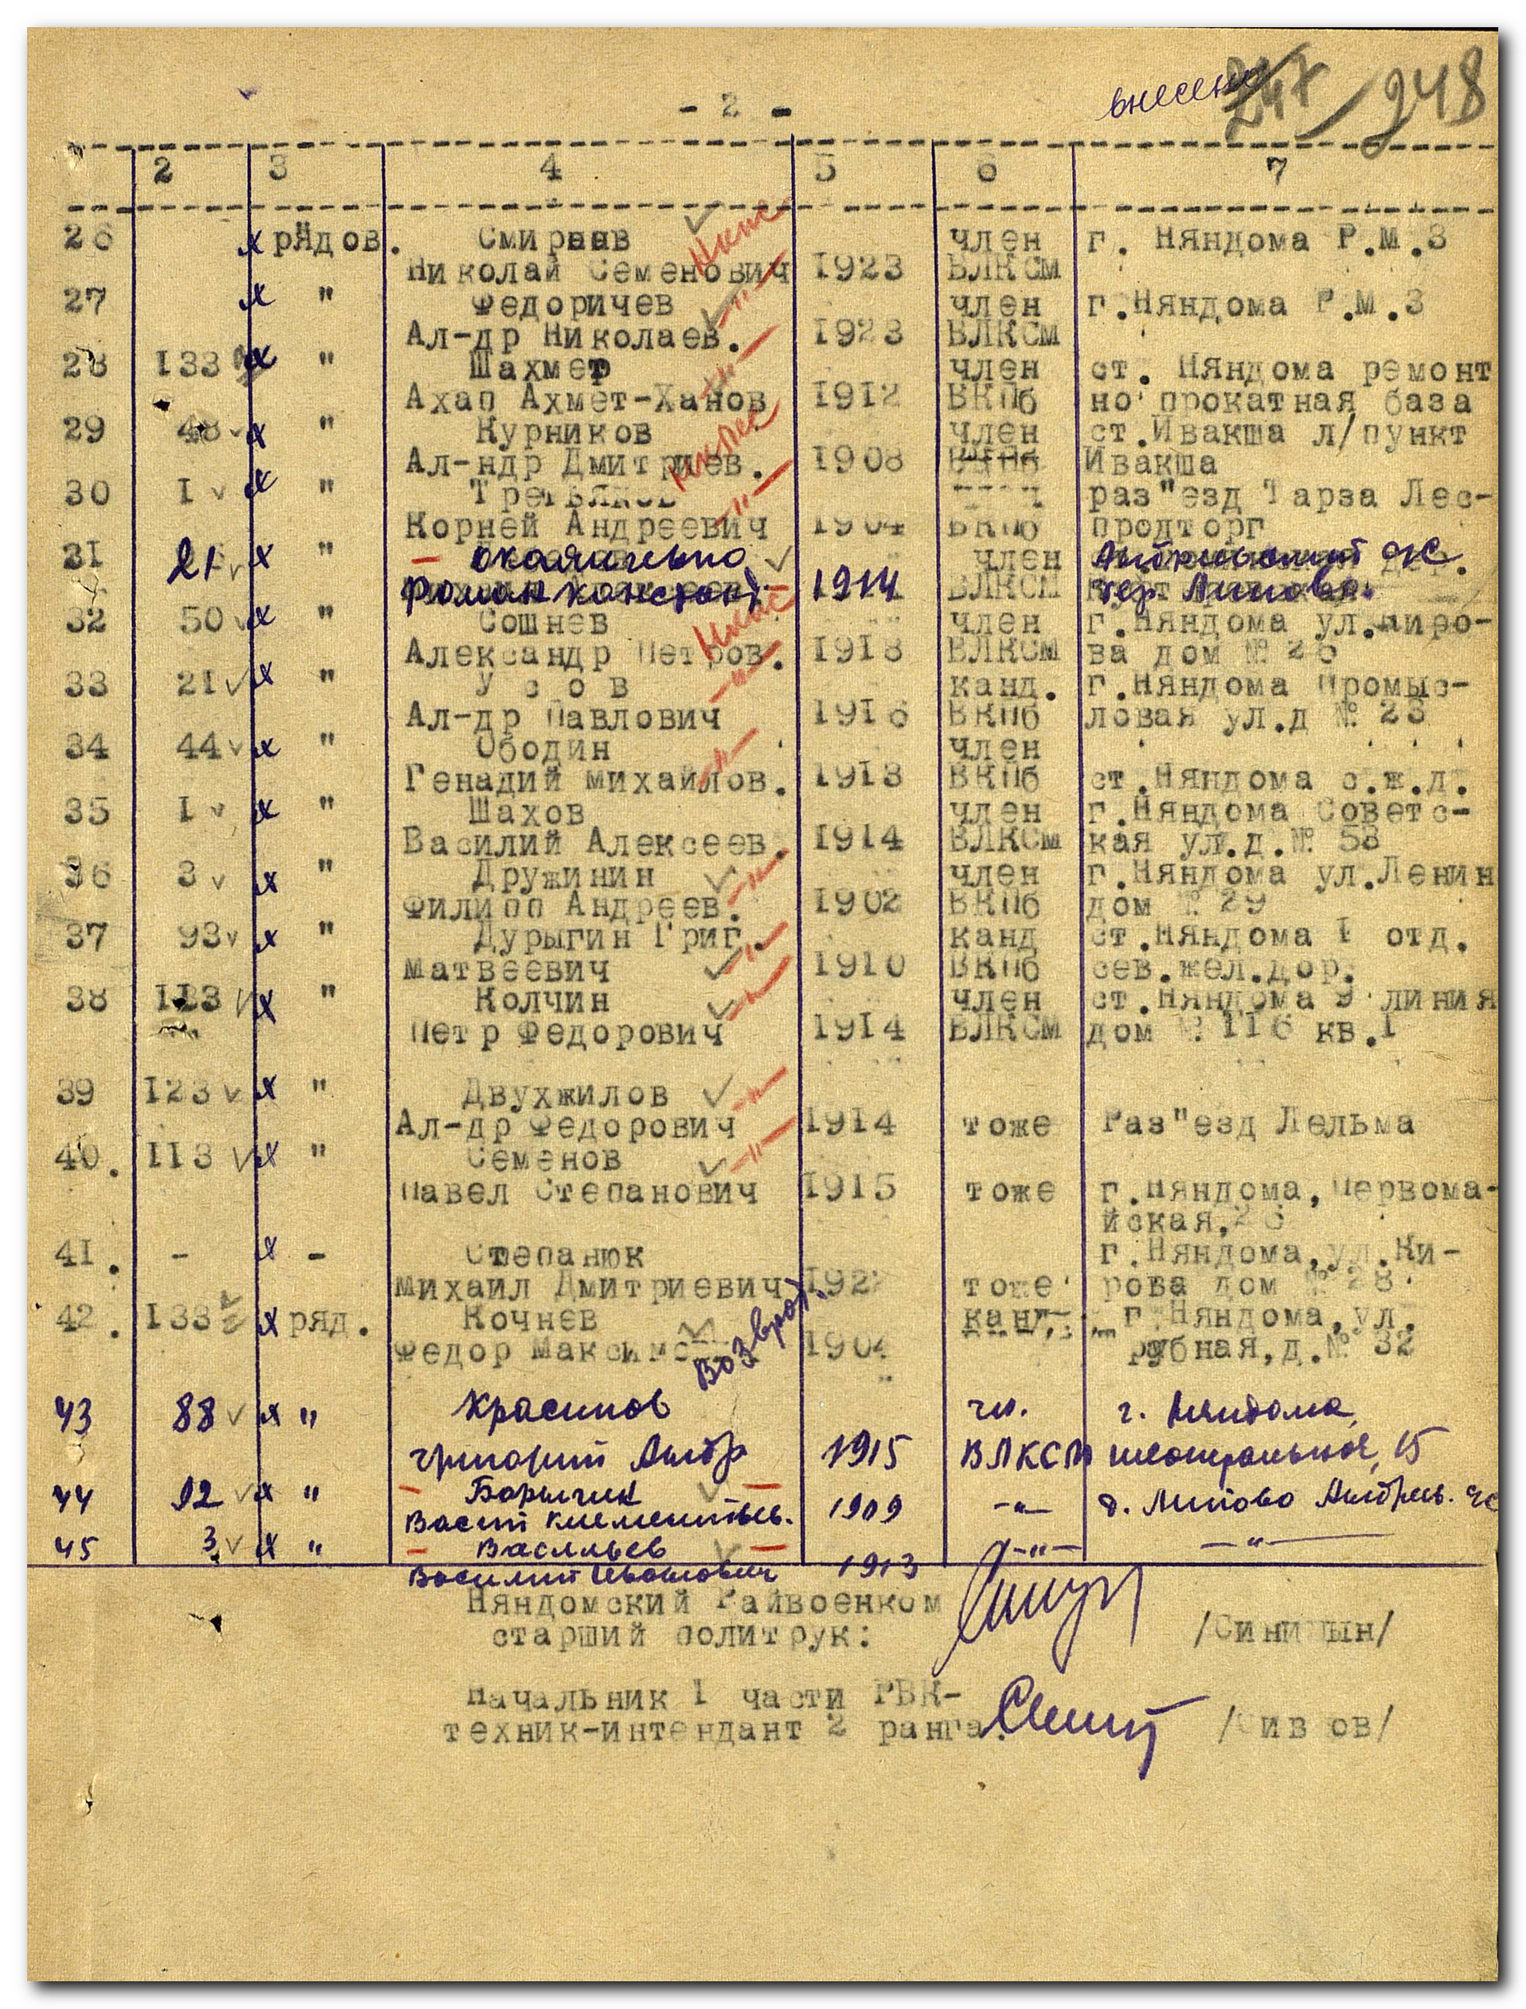 внесены 247 248
- 2 -
2 3 4 5 6 7
26 х рядов. Смирнов член г. Няндома Р.М.З
Николай Семенович 1923 ВЛКСМ
Нкпс
27 х " Федоричев член г.Няндома Р.М.З
-"-
Ал-др Николаев. 1923 ВЛКСМ
28 133 х " Шахмет член ст. Няндома ремонт
-"-
Ахап Ахмет-Ханов 1912 ВКПб но прокатная база
29 48 х " Курников член ст.Ивакша л/пункт
Ал-ндр Дмитриев. 1908 ВКПб Ивакша
30 1 х " Третьяков раз"езд Тарза Лес-
-"-
Корней Андреевич 1904 ВКПб продторг
31 21 х " член
Роман Констант 1914 ВЛКСМ дер. Липово.
32 50 х " Сошнев член г.Няндома ул.Киро-
Нкпс
Александр Петров. 1918 ВЛКСМ ва дом № 26
33 21 х " У с о в канд. г.Няндома Промыс-
-"-
Ал-др Павлович 1916 ВКПб ловая ул.д № 23
34 44 х " Ободин член
-"-
Генадий Михайлов. 1913 ВКПб ст.Няндома с.ж.д.
35 1 х " Шахов член г.Няндома Советс-
Василий Алексеев. 1914 ВЛКСМ кая ул.д.№ 58
36 3 х " Дружинин член г.Няндома ул.Ленин
-"-
Филипп Андреев. 1902 ВКПб дом № 29
37 93 х " Дурыгин Григ. канд ст.Няндома 1 отд.
-"-
Матвеевич 1910 ВКПб сев.жел.дор.
38 123 х " Колчин член ст.Няндома 9 линия
-"-
Петр Федорович 1914 ВЛКСМ дом № 116 кв.1
39 123 х " Двухжилов
-"-
Ал-др Федорович 1914 тоже Раз"езд Лельма
40. 113 х " Семенов
-"-
Павел Степанович 1915 тоже г.Няндома,Первома-
йская,26
41. - х - Степанюк г.Няндома,ул.Ки-
Михаил Дмитриевич 1922 тоже рова дом № 28
42. 133 х ряд. Кочнев канд. г.Няндома,ул.
Федор Максимо 1904 рубная,д.№ 32
Возврат.
43 88 х " Красиков чл. г. Няндома
Григорий Андр 1915 ВЛКСМ 15
44 92 х " Борычик -"- д. Липово Андреев. ЧС
Васил Клементьев. 1909
45 3 х " Васильев -"- -"-
Василий Иванович 1913
Няндомский Райвоенком
старший политрук: /Синицын/
Начальник 1 части РВК-
техник-интендант 2 ранга.